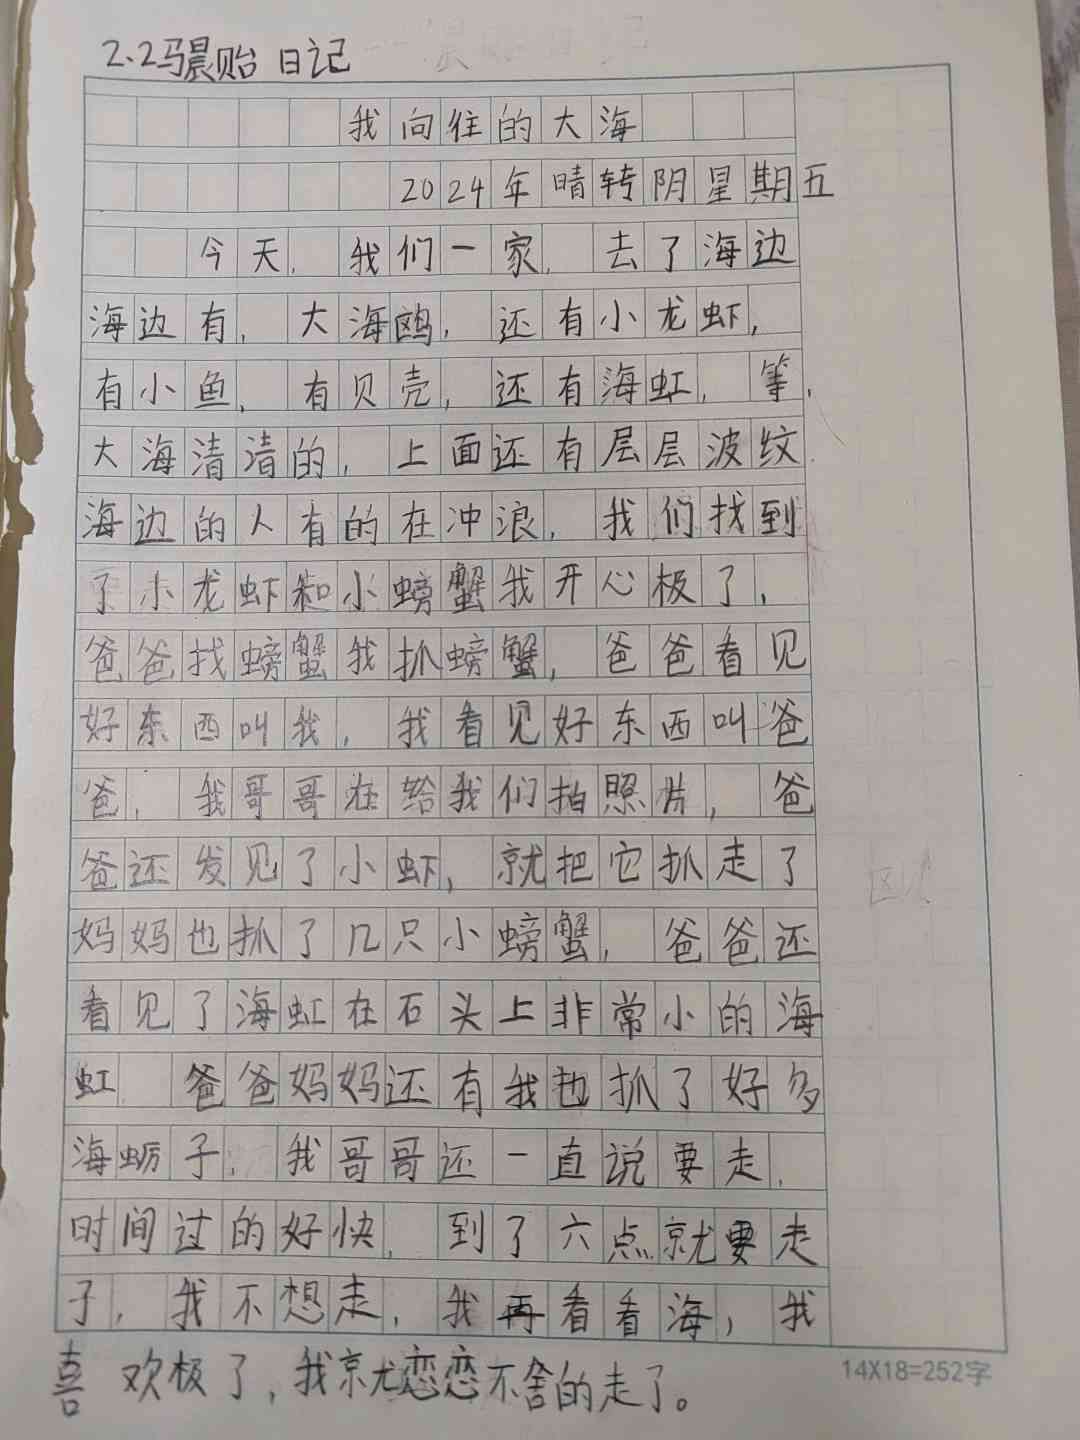 2.2马晨贻 日记
我向往的大海
2024年晴转阴星期五
今天，我们一家，去了海边
海边有，大海鸥，还有小龙虾，
有小鱼，有贝壳，还有海虹，等，
大海清清的，上面还有层层波纹
海边的人有的在冲浪，我们找到
了小龙虾和小螃蟹我开心极了，
爸爸找螃蟹我抓螃蟹，爸爸看见
好东西叫我，我看见好东西叫爸
爸，我哥哥在给我们拍照片，爸
爸还发见了小虾，就把它抓走了
妈妈也抓了几只小螃蟹，爸爸还
看见了海虹在石头上非常小的海
虹 爸爸妈妈还有我也抓了好多
海蛎子，我哥哥还一直说要走，
时间过的好快，到了六点就要走
子，我不想走，我再看看海，我
喜欢极了，我就恋恋不舍的走了。
14X18=252字